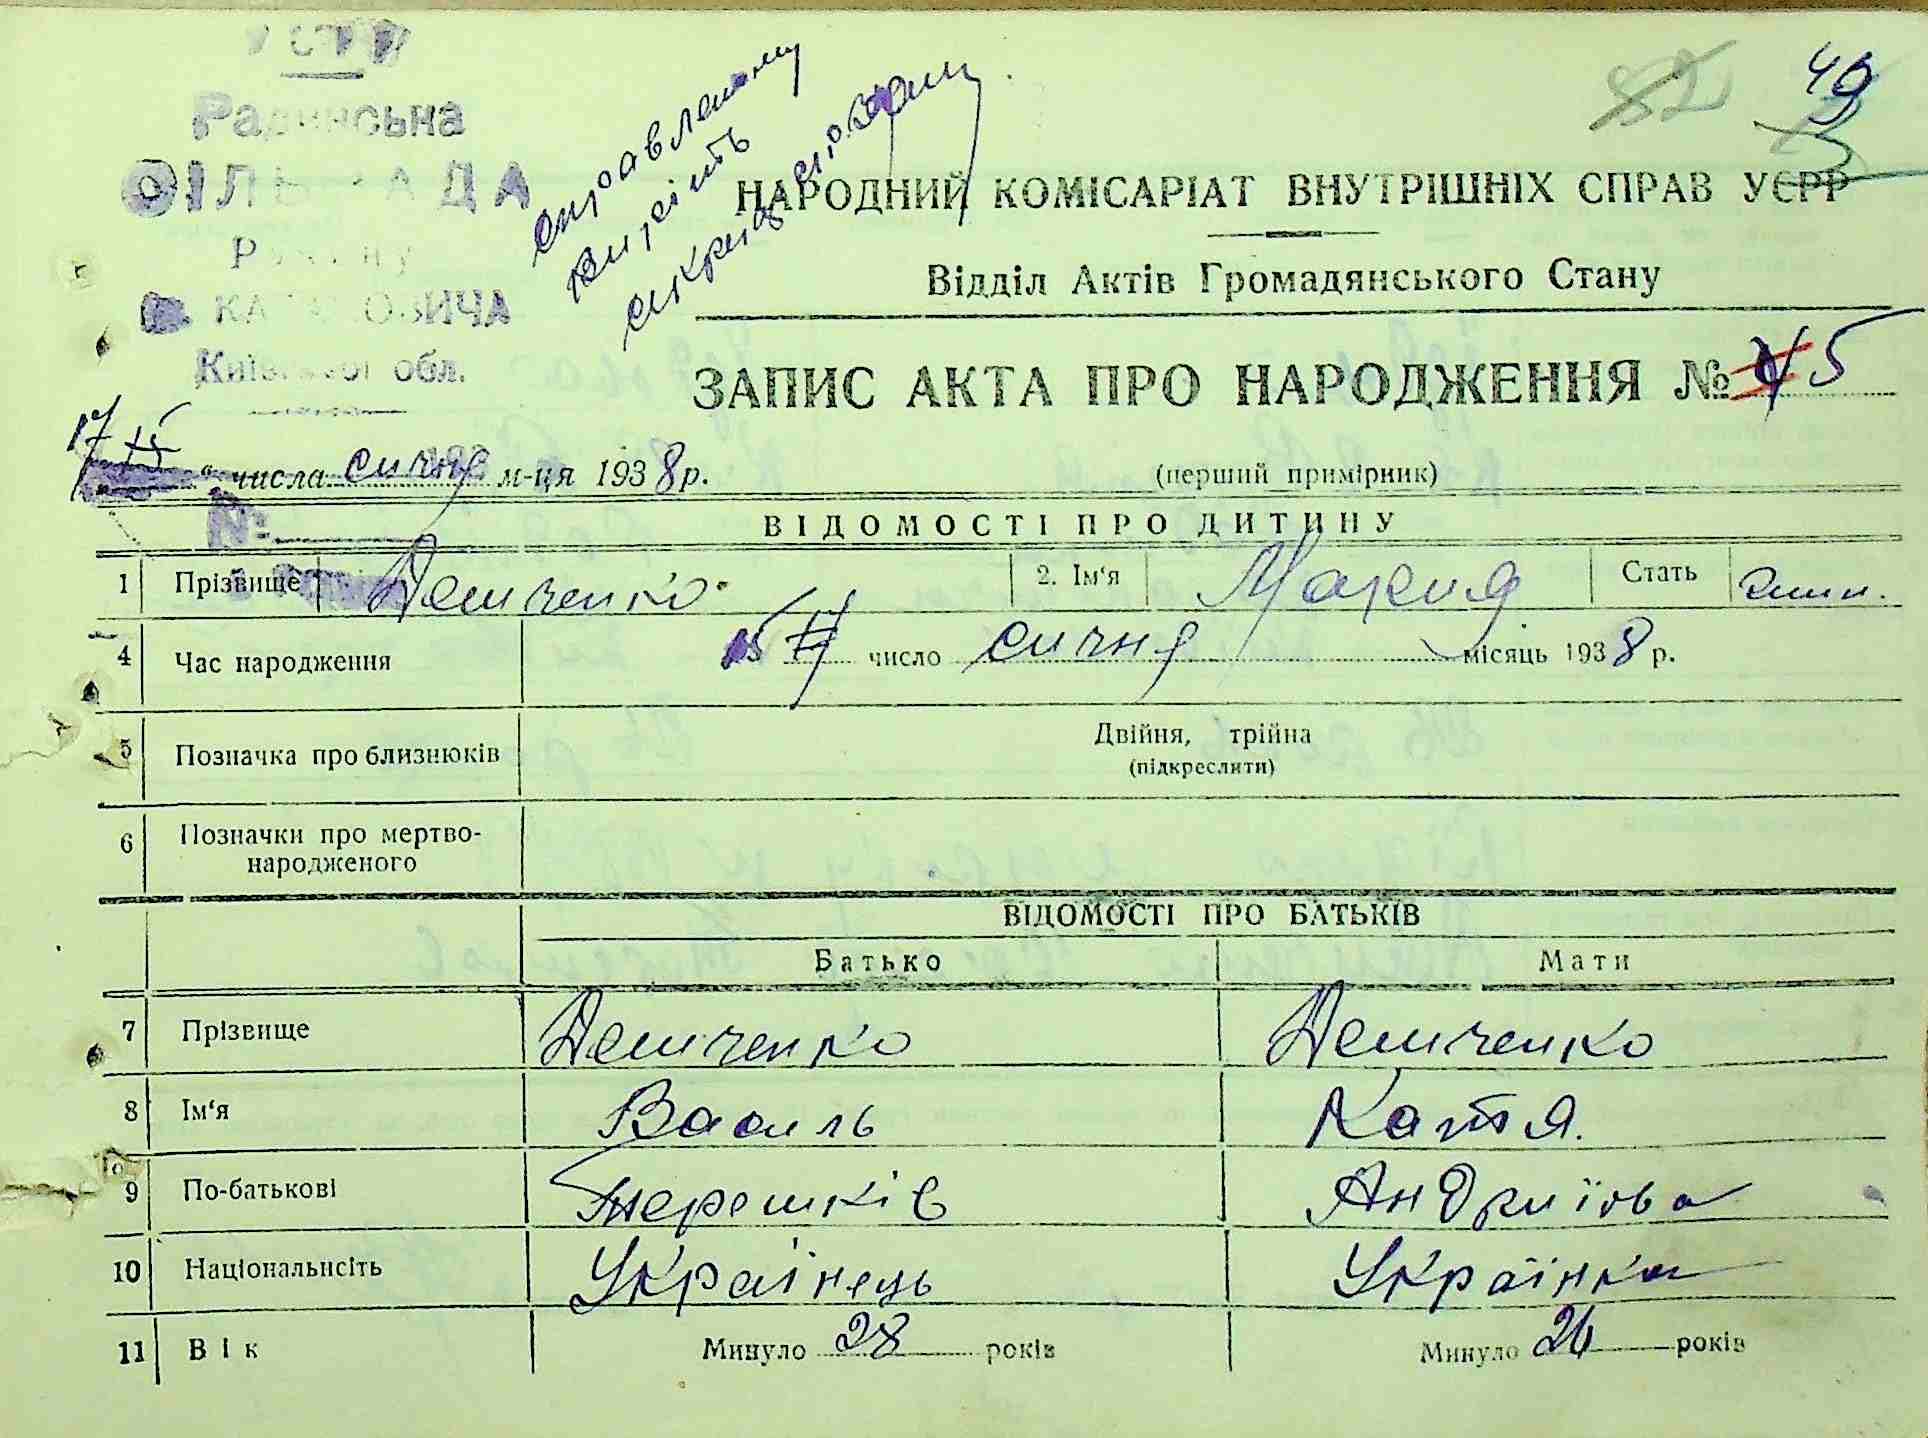 УСРР
Радянська
СІЛЬРАДА
Району
КАГАНОВИЧА
Київської обл.
справленому
вирить
секретар
82
40
НАРОДНИЙ КОМІСАРІАТ ВНУТРІШНІХ СПРАВ УСРР
Відділ Актів Громадянського Стану
ЗАПИС АКТА ПРО НАРОДЖЕННЯ № 5
17
15
" числа сичня м-ця 1938 р.
(перший примірник)
№
ВІДОМОСТІ ПРО ДИТИНУ
1 Прізвище Демченко 2. Ім'я Мария Стать жин.
4 Час народження 15 число сичня місяць 1938 р.
5 Позначка про близнюків Двійня, трійна
(підкреслити)
6 Позначки про мертво-
народженого
ВІДОМОСТІ ПРО БАТЬКІВ
Батько Мати
7 Прізвище Демченко Демченко
8 Ім'я Василь Катя.
9 По-батькові Терешків Андриїова
10 Національність Українець Українка
11 Вік Минуло 28 років Минуло 26 років